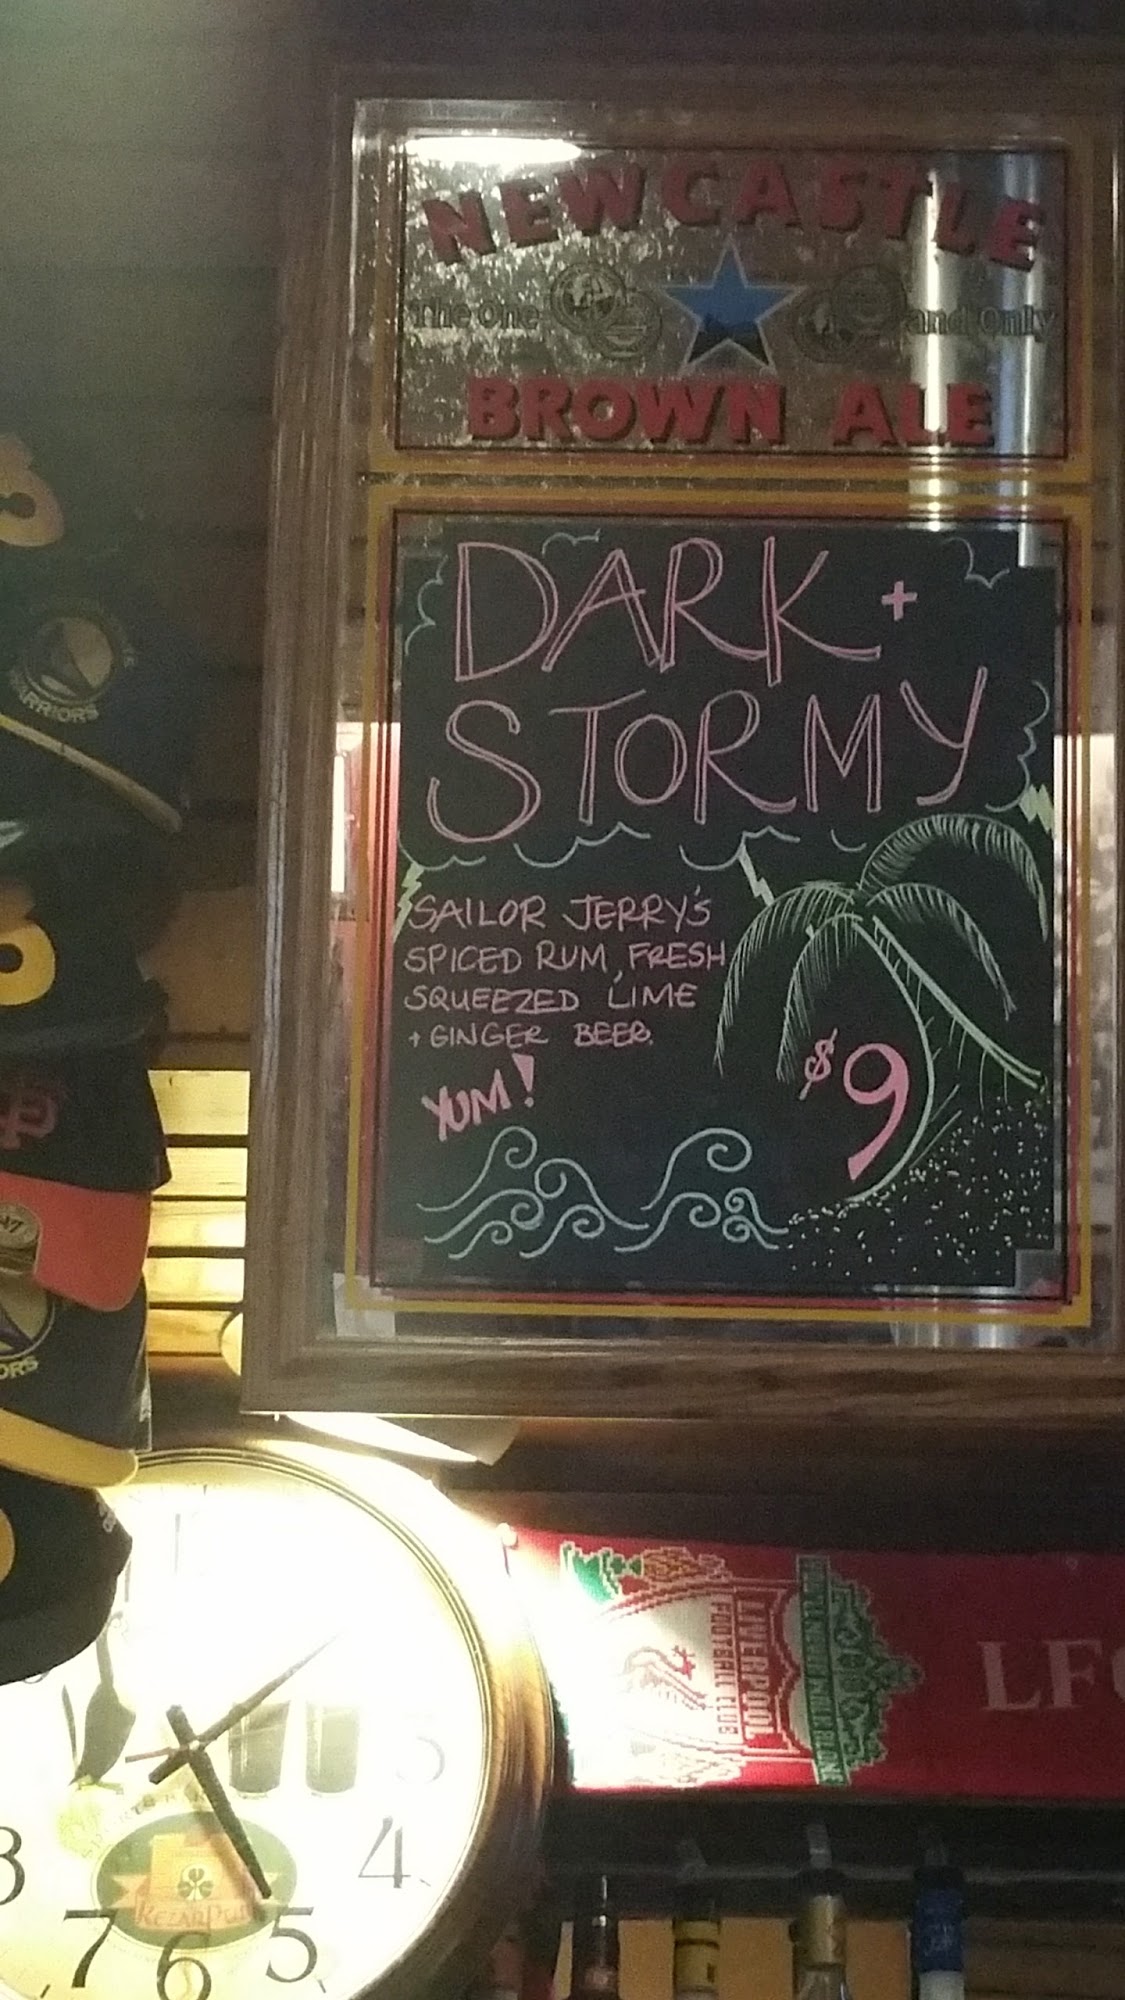 NEWCASTLE
The One and Only
BROWN ALE
DARK +
STORMY
SAILOR JERRY'S
SPICED RUM, FRESH
SQUEEZED LIME
+ GINGER BEER.
YUM!
$9
WARRIORS
ORS
LIVERPOOL
FOOTBALL CLUB
YOU'LL NEVER WALK ALONE
LFC
3
4
5
6
7
8
KEZAR PUB